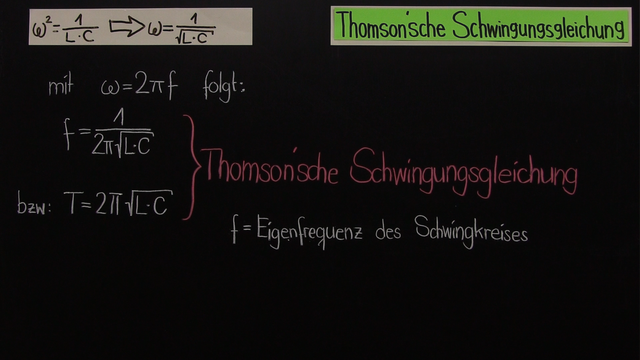 ω² = 1/(L·C) ⇨ ω = 1/√(L·C)
Thomson'sche Schwingungsgleichung
mit ω = 2πf folgt:
f = 1/(2π√(L·C))
Thomson'sche Schwingungsgleichung
bzw: T = 2π√(L·C)
f = Eigenfrequenz des Schwingkreises